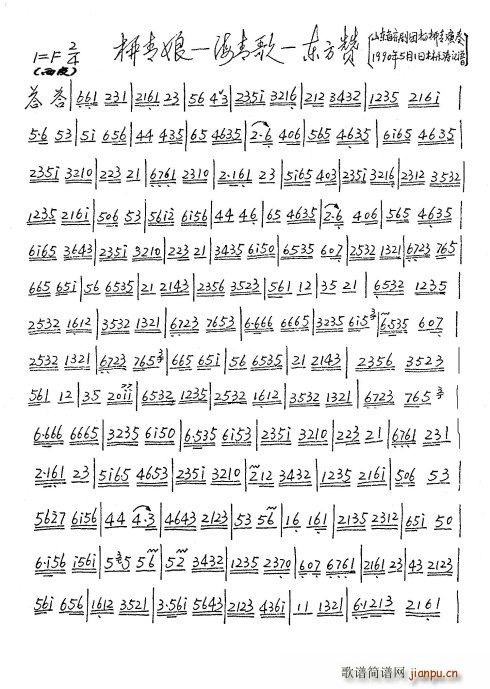 1=F 2/4 柳青娘—海青歌—东方赞
(西皮) 1990年5月1日
𫇦 𫇦 | 661 231 | 2161 23 | 56 43 | 2351 3216 | 212 3432 | 1235 2161 |
5·6 53 | 51 656 | 44 435 | 65 4635 | 2·6 406 | 565 4635 | 6165 4635 |
2351 3210 | 223 21 | 6761 2310 | 2·161 23 | 5165 403 | 2351 3216 | 2312 3532 |
1235 2161 | 506 53 | 5612 6156 | 44 46 | 65 4635 | 2·6 406 | 565 4635 |
6165 3643 | 2351 3210 | 223 21 | 3435 6150 | 6535 607 | 2532 1321 | 6723 765 |
665 651 | 56 6535 | 21 2143 | 2356 3523 | 561 12 | 35 21 | 6532 1235 |
2532 1612 | 3532 1321 | 6723 7653 | 6·666 6665 | 3235 615 | 6·535 607 |
2532 1321 | 6723 765 | 665 651 | 56 6535 | 21 2143 | 2356 3523 |
561 12 | 35 2011 | 6532 1235 | 2532 1612 | 3532 1321 | 6723 765 |
6·666 6665 | 3235 6150 | 6·535 6153 | 2351 3210 | 223 21 | 6761 231 |
2·161 23 | 5165 4653 | 2351 3210 | 212 3432 | 1235 2161 | 506 53 |
5627 6156 | 44 4·3 | 4643 2123 | 53 56 | 16 161 | 2135 2312 | 651 50 |
6·156 1561 | 5 5 56 | 52 3432 | 1235 2370 | 607 6761 | 2161 23 | 43 2123 |
561 656 | 1612 3521 | 3·561 5643 | 2123 4361 | 11 1321 | 6·1213 2161 |
歌谱简谱网
jianpu.cn